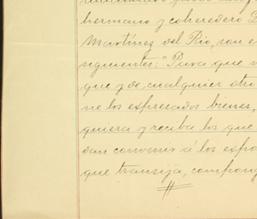 hermano y coheredero D
Martínez del Río, con e
siguientes: "Para que v
que y de, cualquier otro
ne los espresados bienes,
quiera y reciba los que
san convenir á los espre
que transija, compong